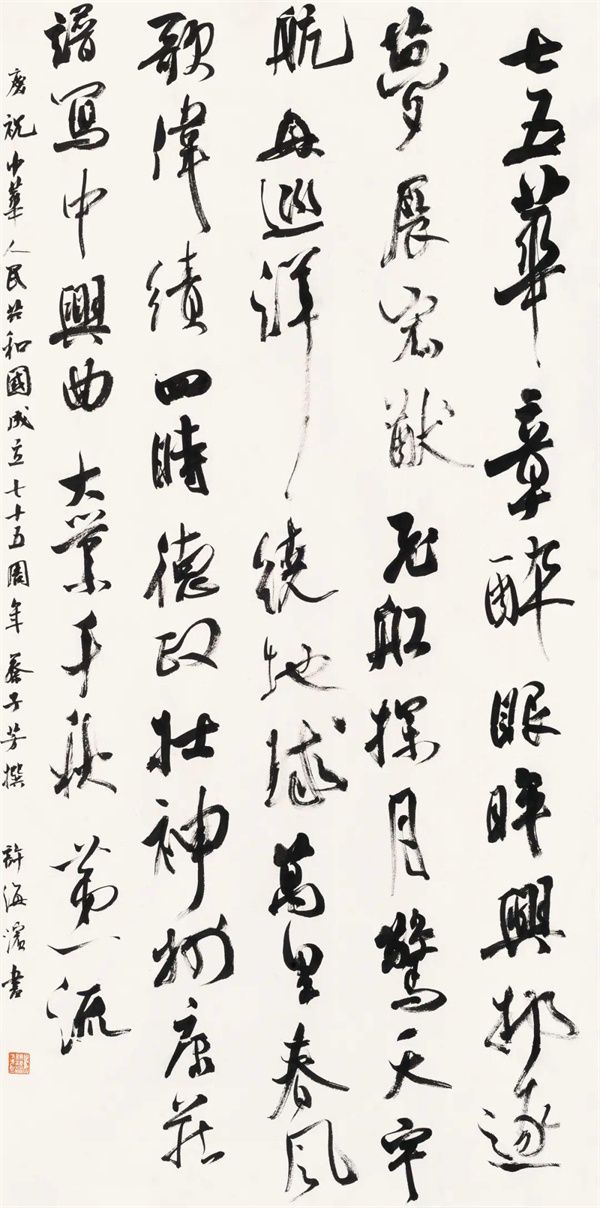 七五華章醉眼眸興邦逐
夢展宏猷飛船探月驚天宇
航母巡洋繞地球萬里春風
歌偉績四時德政壯神州康莊
譜寫中興曲大業千秋第一流
慶祝中華人民共和國成立七十五周年蔡子芳撰 許海濱書